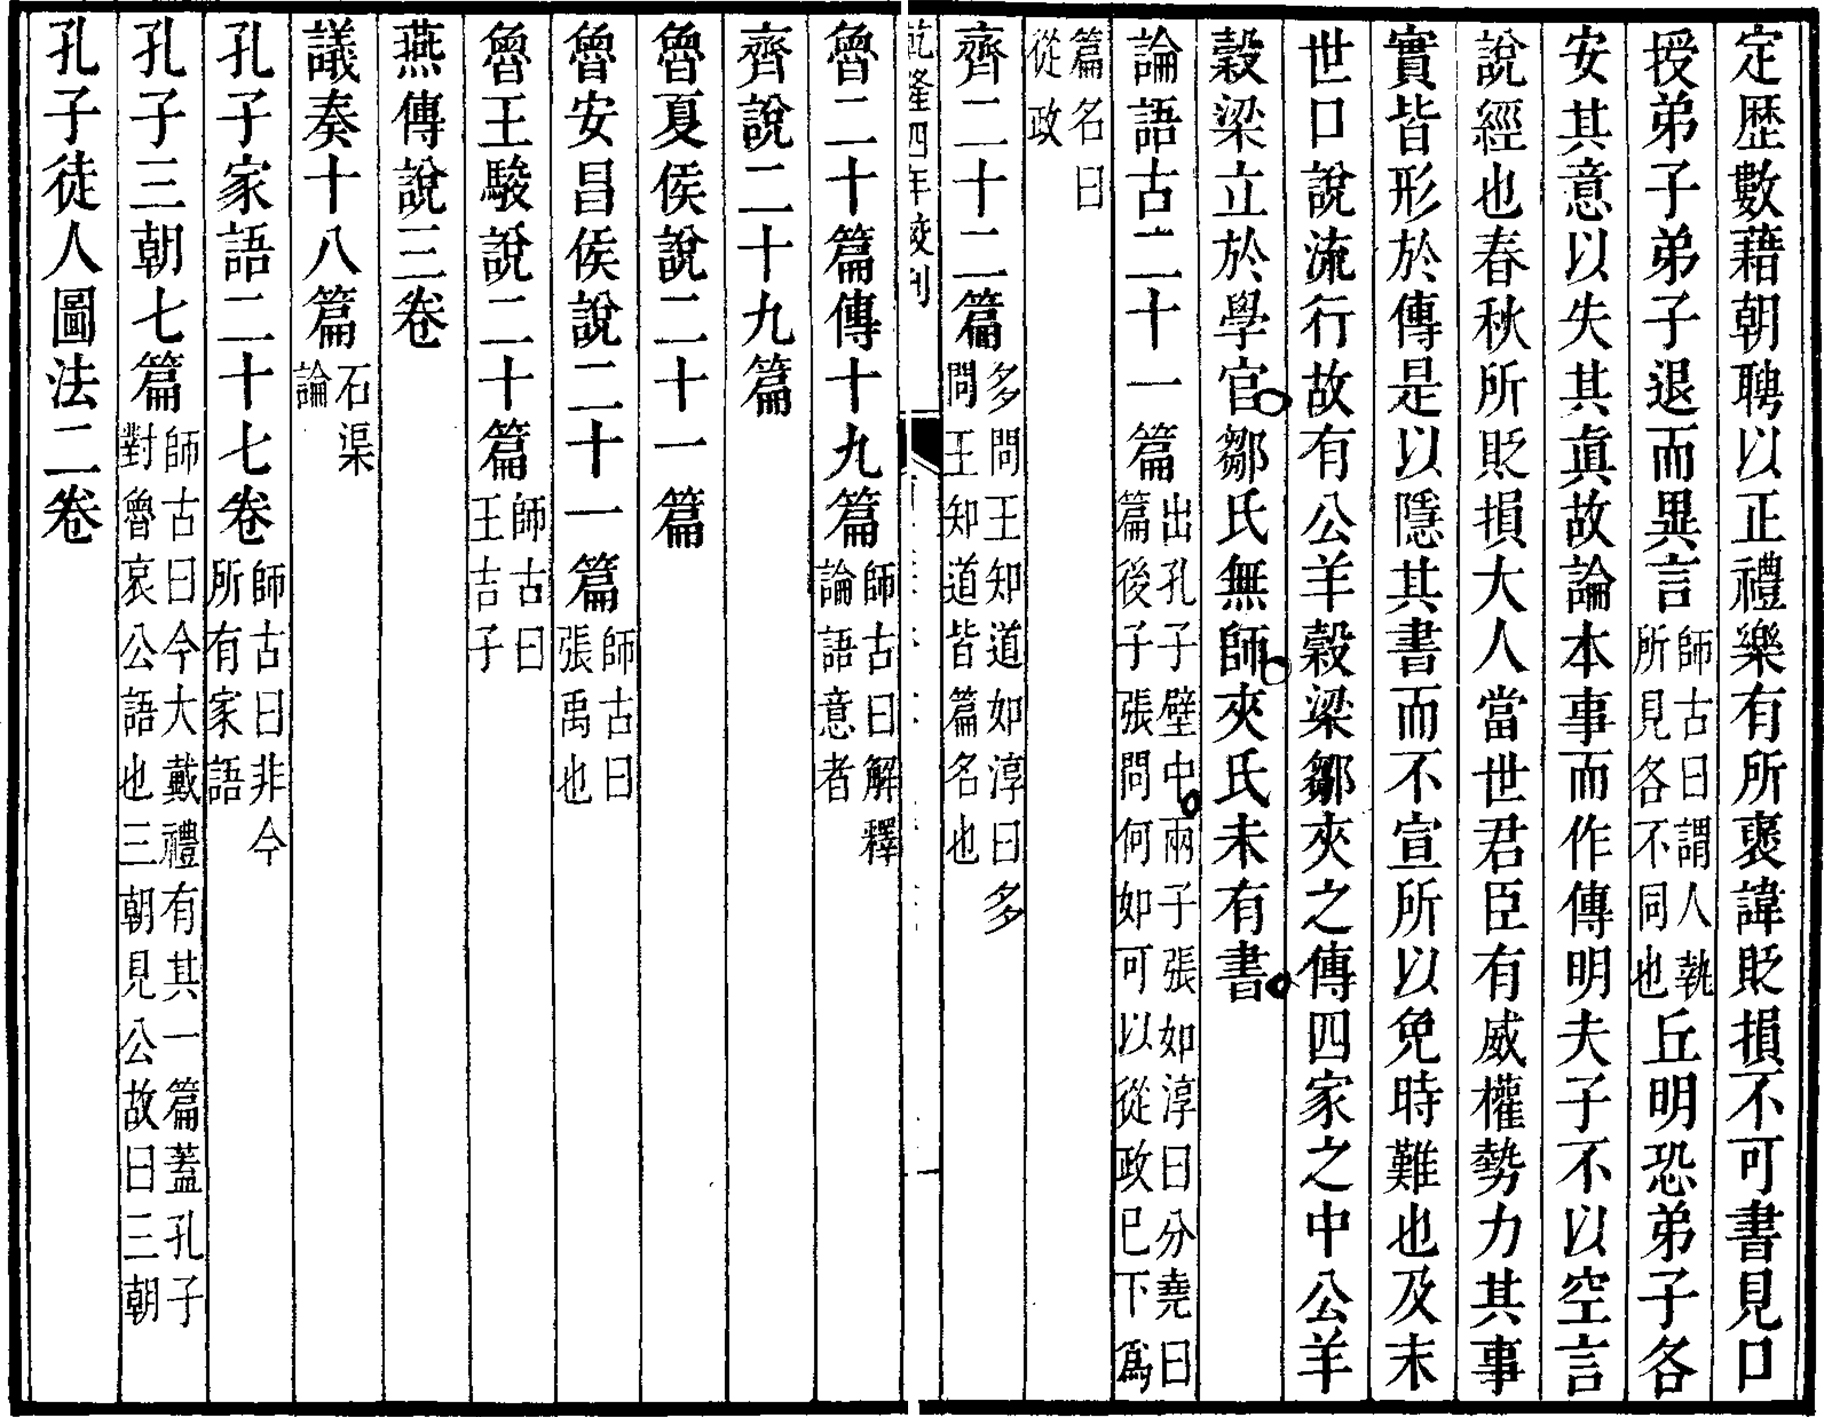 定歷數藉朝聘以正禮樂有所襃諱貶損不可書見口
授弟子弟子退而異言師古曰謂人執所見各不同也丘明恐弟子各
安其意以失其真故論本事而作傳明夫子不以空言
說經也春秋所貶損大人當世君臣有威權勢力其事
實皆形於傳是以隱其書而不宣所以免時難也及末
世口說流行故有公羊穀梁鄒夾之傳四家之中公羊
穀梁立於學官鄒氏無師夾氏未有書
論語古二十一篇出孔子壁中兩子張如淳曰分堯曰篇後子張問何如可以從政已下爲
篇名曰從政
齊二十二篇多問王知道如淳曰多問王知道皆篇名也
乾隆四年校刊
魯二十篇傳十九篇師古曰解釋論語意者
齊說二十九篇
魯夏侯說二十一篇
魯安昌侯說二十一篇師古曰張禹也
魯王駿說二十篇師古曰王吉子
燕傳說三卷
議奏十八篇石渠論
孔子家語二十七卷師古曰非今所有家語
孔子三朝七篇師古曰今大戴禮有其一篇蓋孔子對魯哀公語也三朝見公故曰三朝
孔子徒人圖法二卷